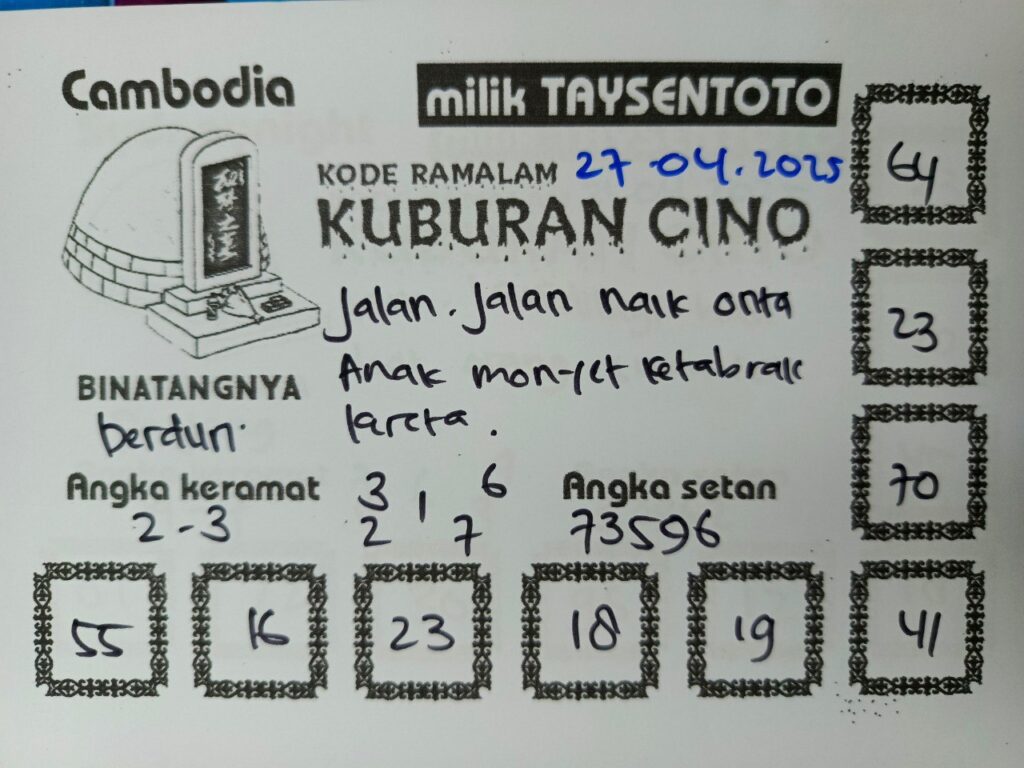 Cambodia
milik TAYSENTOTO
KODE RAMALAM 27-04.2025
KUBURAN CINO
Jalan. Jalan naik onta
Anak monyet ketabrak
kareta.
BINATANGNYA
berdun.
Angka keramat
2-3
3 1 6
2 7
Angka setan
73596
64
23
70
55 16 23 18 19 41